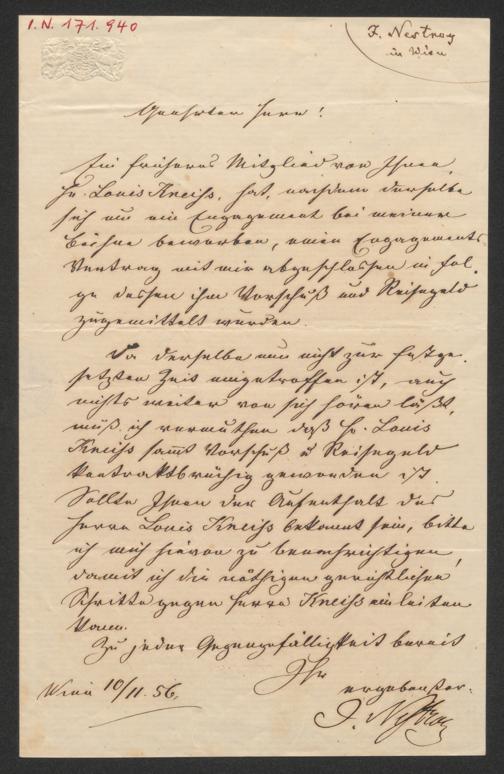 I.N. 171.940
J. Nestroy
in Wien
Geehrter Herr!
Ein früheres Mitglied von Ihnen,
Hr. Louis Kneiss, hat, nachdem derselbe
sich um ein Engagement bei meiner
Bühne beworben, einen Engagements
Vertrag mit mir abgeschlossen in fol-
ge dessen ihm Vorschuß und Reisegeld
zugemittelt wurden.
Da derselbe nun nicht zur festge-
setzten Zeit eingetroffen ist, auch
nichts weiter von sich hören läßt,
muß ich vermuthen daß Hr. Louis
Kneiss sammt Vorschuß u Reisegeld
kontraktbrüchig geworden ist.
Sollte Ihnen der Aufenthalt des
Herrn Louis Kneiss bekannt sein, bitte
ich mich hievon zu benachrichtigen,
damit ich die nöthigen gerichtlichen
Schritte gegen Herrn Kneiss einleiten
kann.
Zu jeder Gegengefälligkeit bereit
Ihr
ergebenster
Wien 10/11. 56.
J. Nestroy